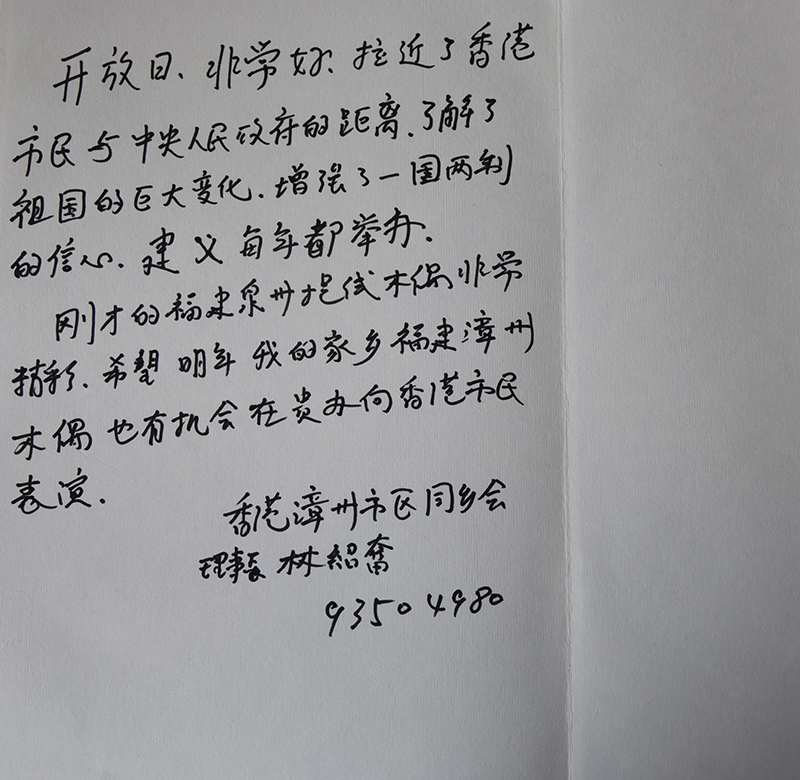 开放日、非常好、拉近了香港
市民与中央人民政府的距离、了解了
祖国的巨大变化、增强了一国两制
的信心、建议每年都举办.
刚才的福建泉州提线木偶非常
精彩、希望明年我的家乡福建漳州
木偶也有机会在贵办向香港市民
表演.
香港漳州市区同乡会
理事长 林绍奋
93504980